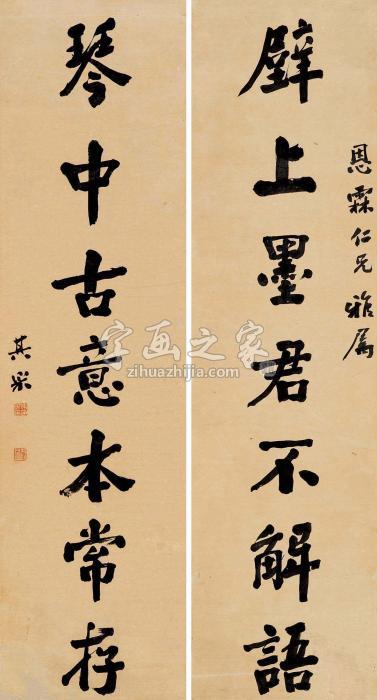 恩霖仁兄雅屬
壁上墨君不解語
琴中古意本常存
其采
字画之家
zihuazhijia.com